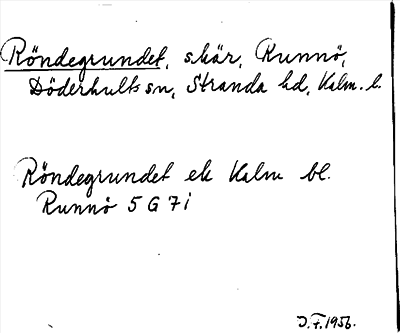 Röndegrundet, skär, Runnö,
Döderhults sn, Stranda hd, Kalm. l.
Röndegrundet ek Kalm bl.
Runnö 5 G 7 i
J.F. 1956.